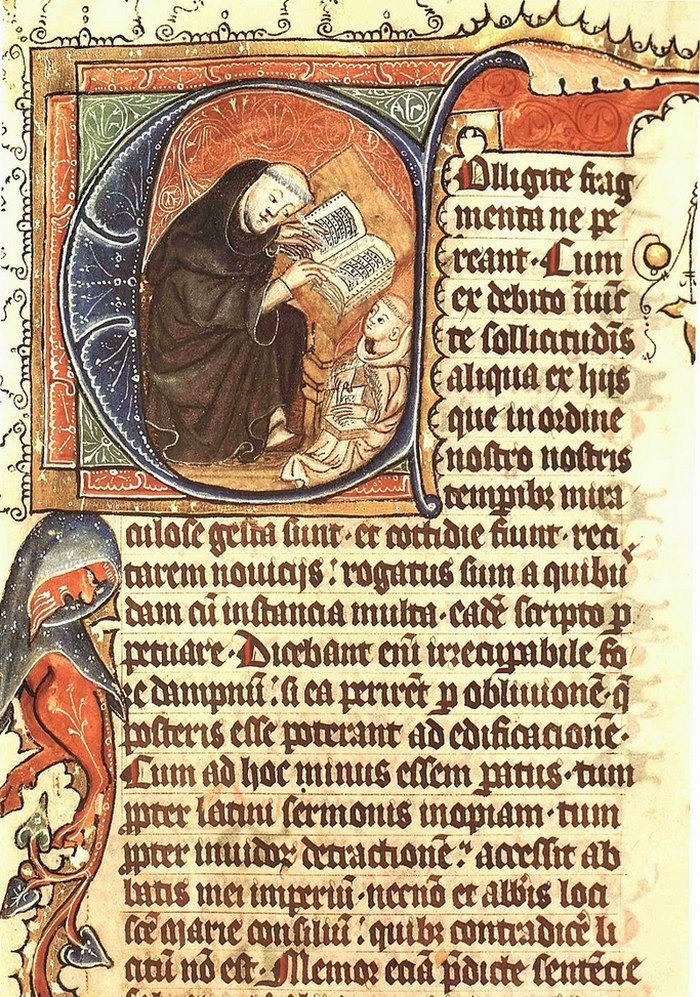 Colligite frag
menta ne pe
reant· Cum
ex debito iniūc
te sollicitudīs
aliqua ex hijs
que in ordine
nostro nostris
temporibꝫ mira
culose gesta sunt· et cottidie fiunt· reci
tarem nouicijs: rogatus sum a quibuſ
dam cū instancia multa· eadē scripto ꝑ
petuare· Dicebant enī irrecuꝑabile fo
re dampnū: si ea perirēt ꝑ obliuionē· q̄
posteris esse poterant ad edificacionē·
Cum ad hoc minus essem ꝑatus· tum
ꝓpter latini sermonis inopiam· tum
ꝓpter inuidoꝝ detractionē: accessit ab
batis mei imperiū· necnō et abb̄is loci
scē marie consiliū: quibꝫ contradicē li
citū nō est· Memor eciā p̄dicte sentēcie